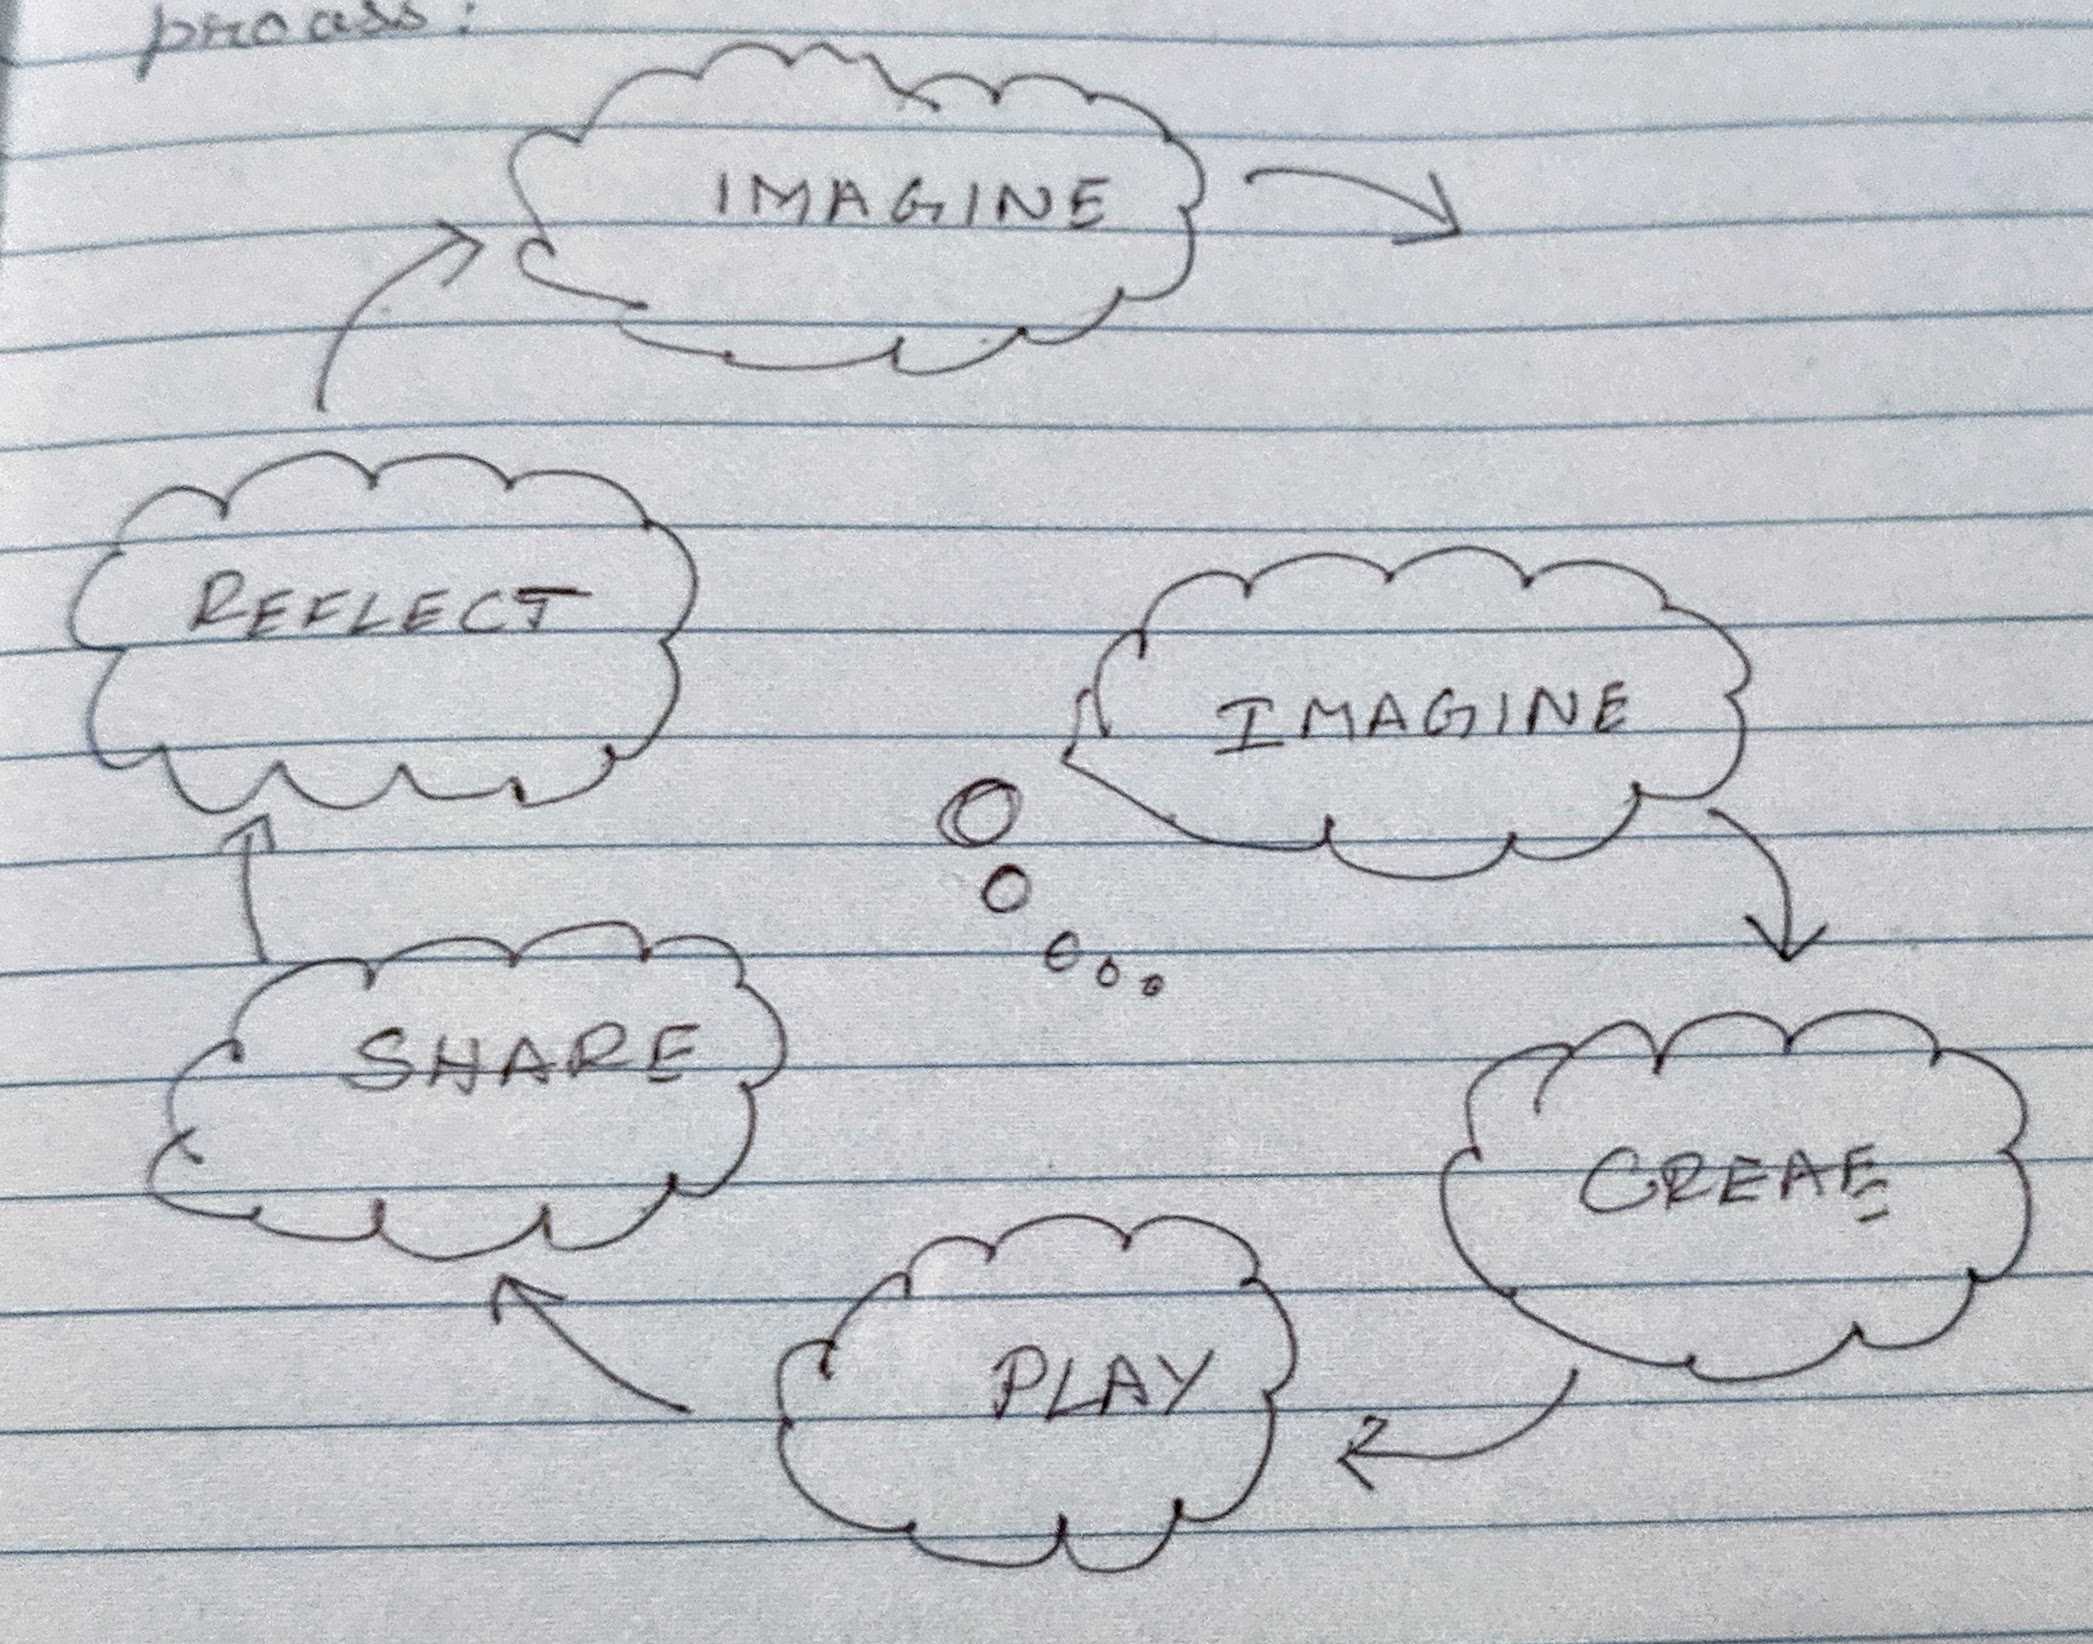 process:
IMAGINE
REFLECT
IMAGINE
SHARE
CREAE
PLAY